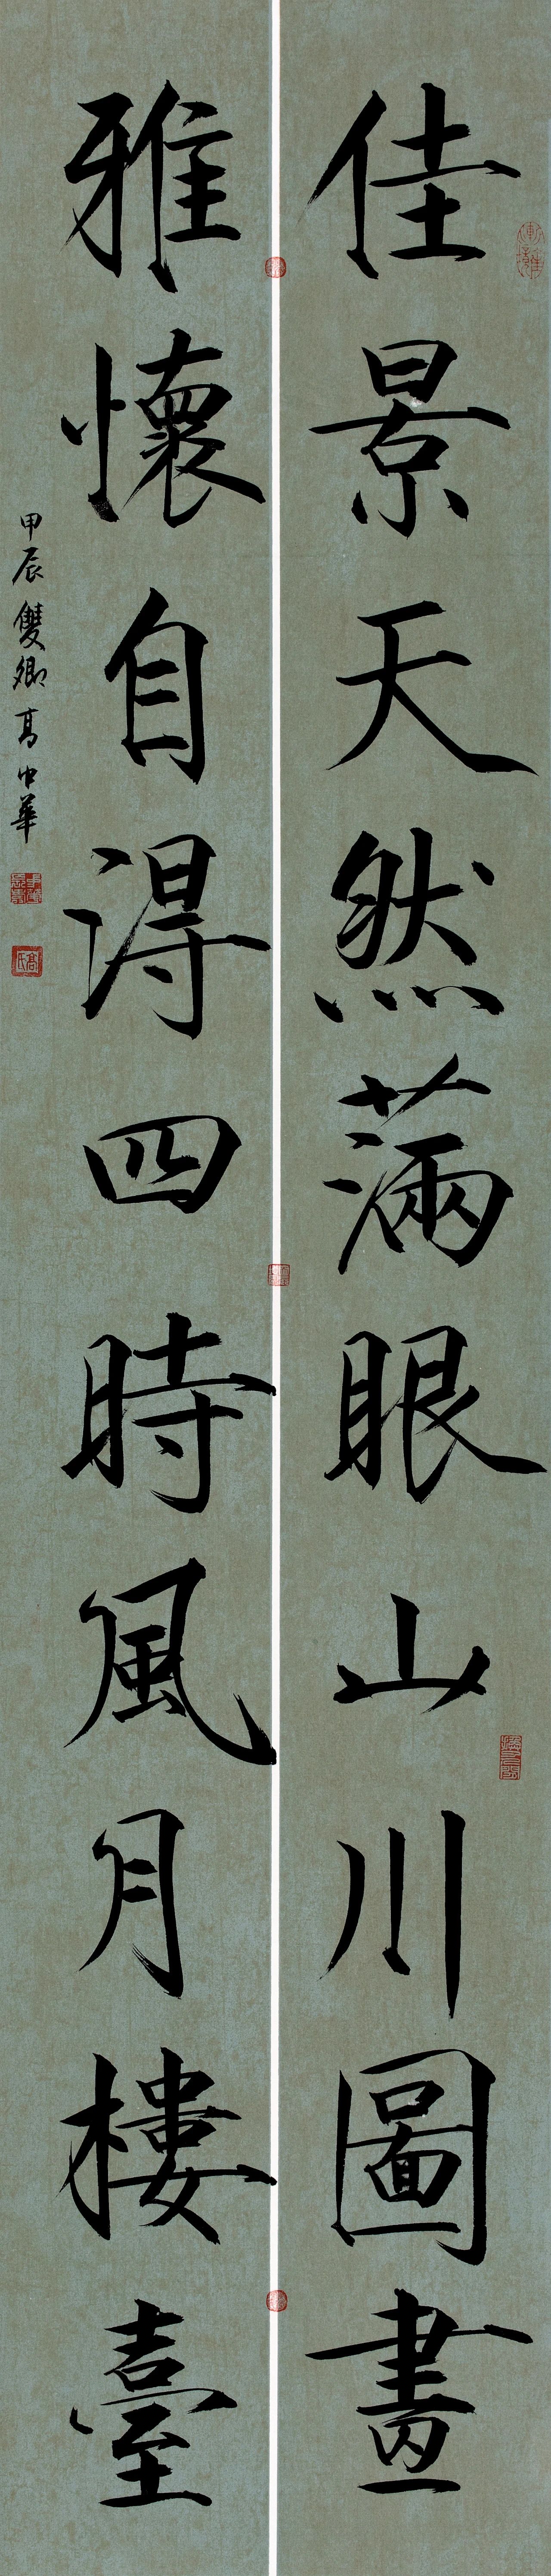 佳景天然滿眼山川圖畫
雅懷自得四時風月樓臺
甲辰雙卿高中華
高氏